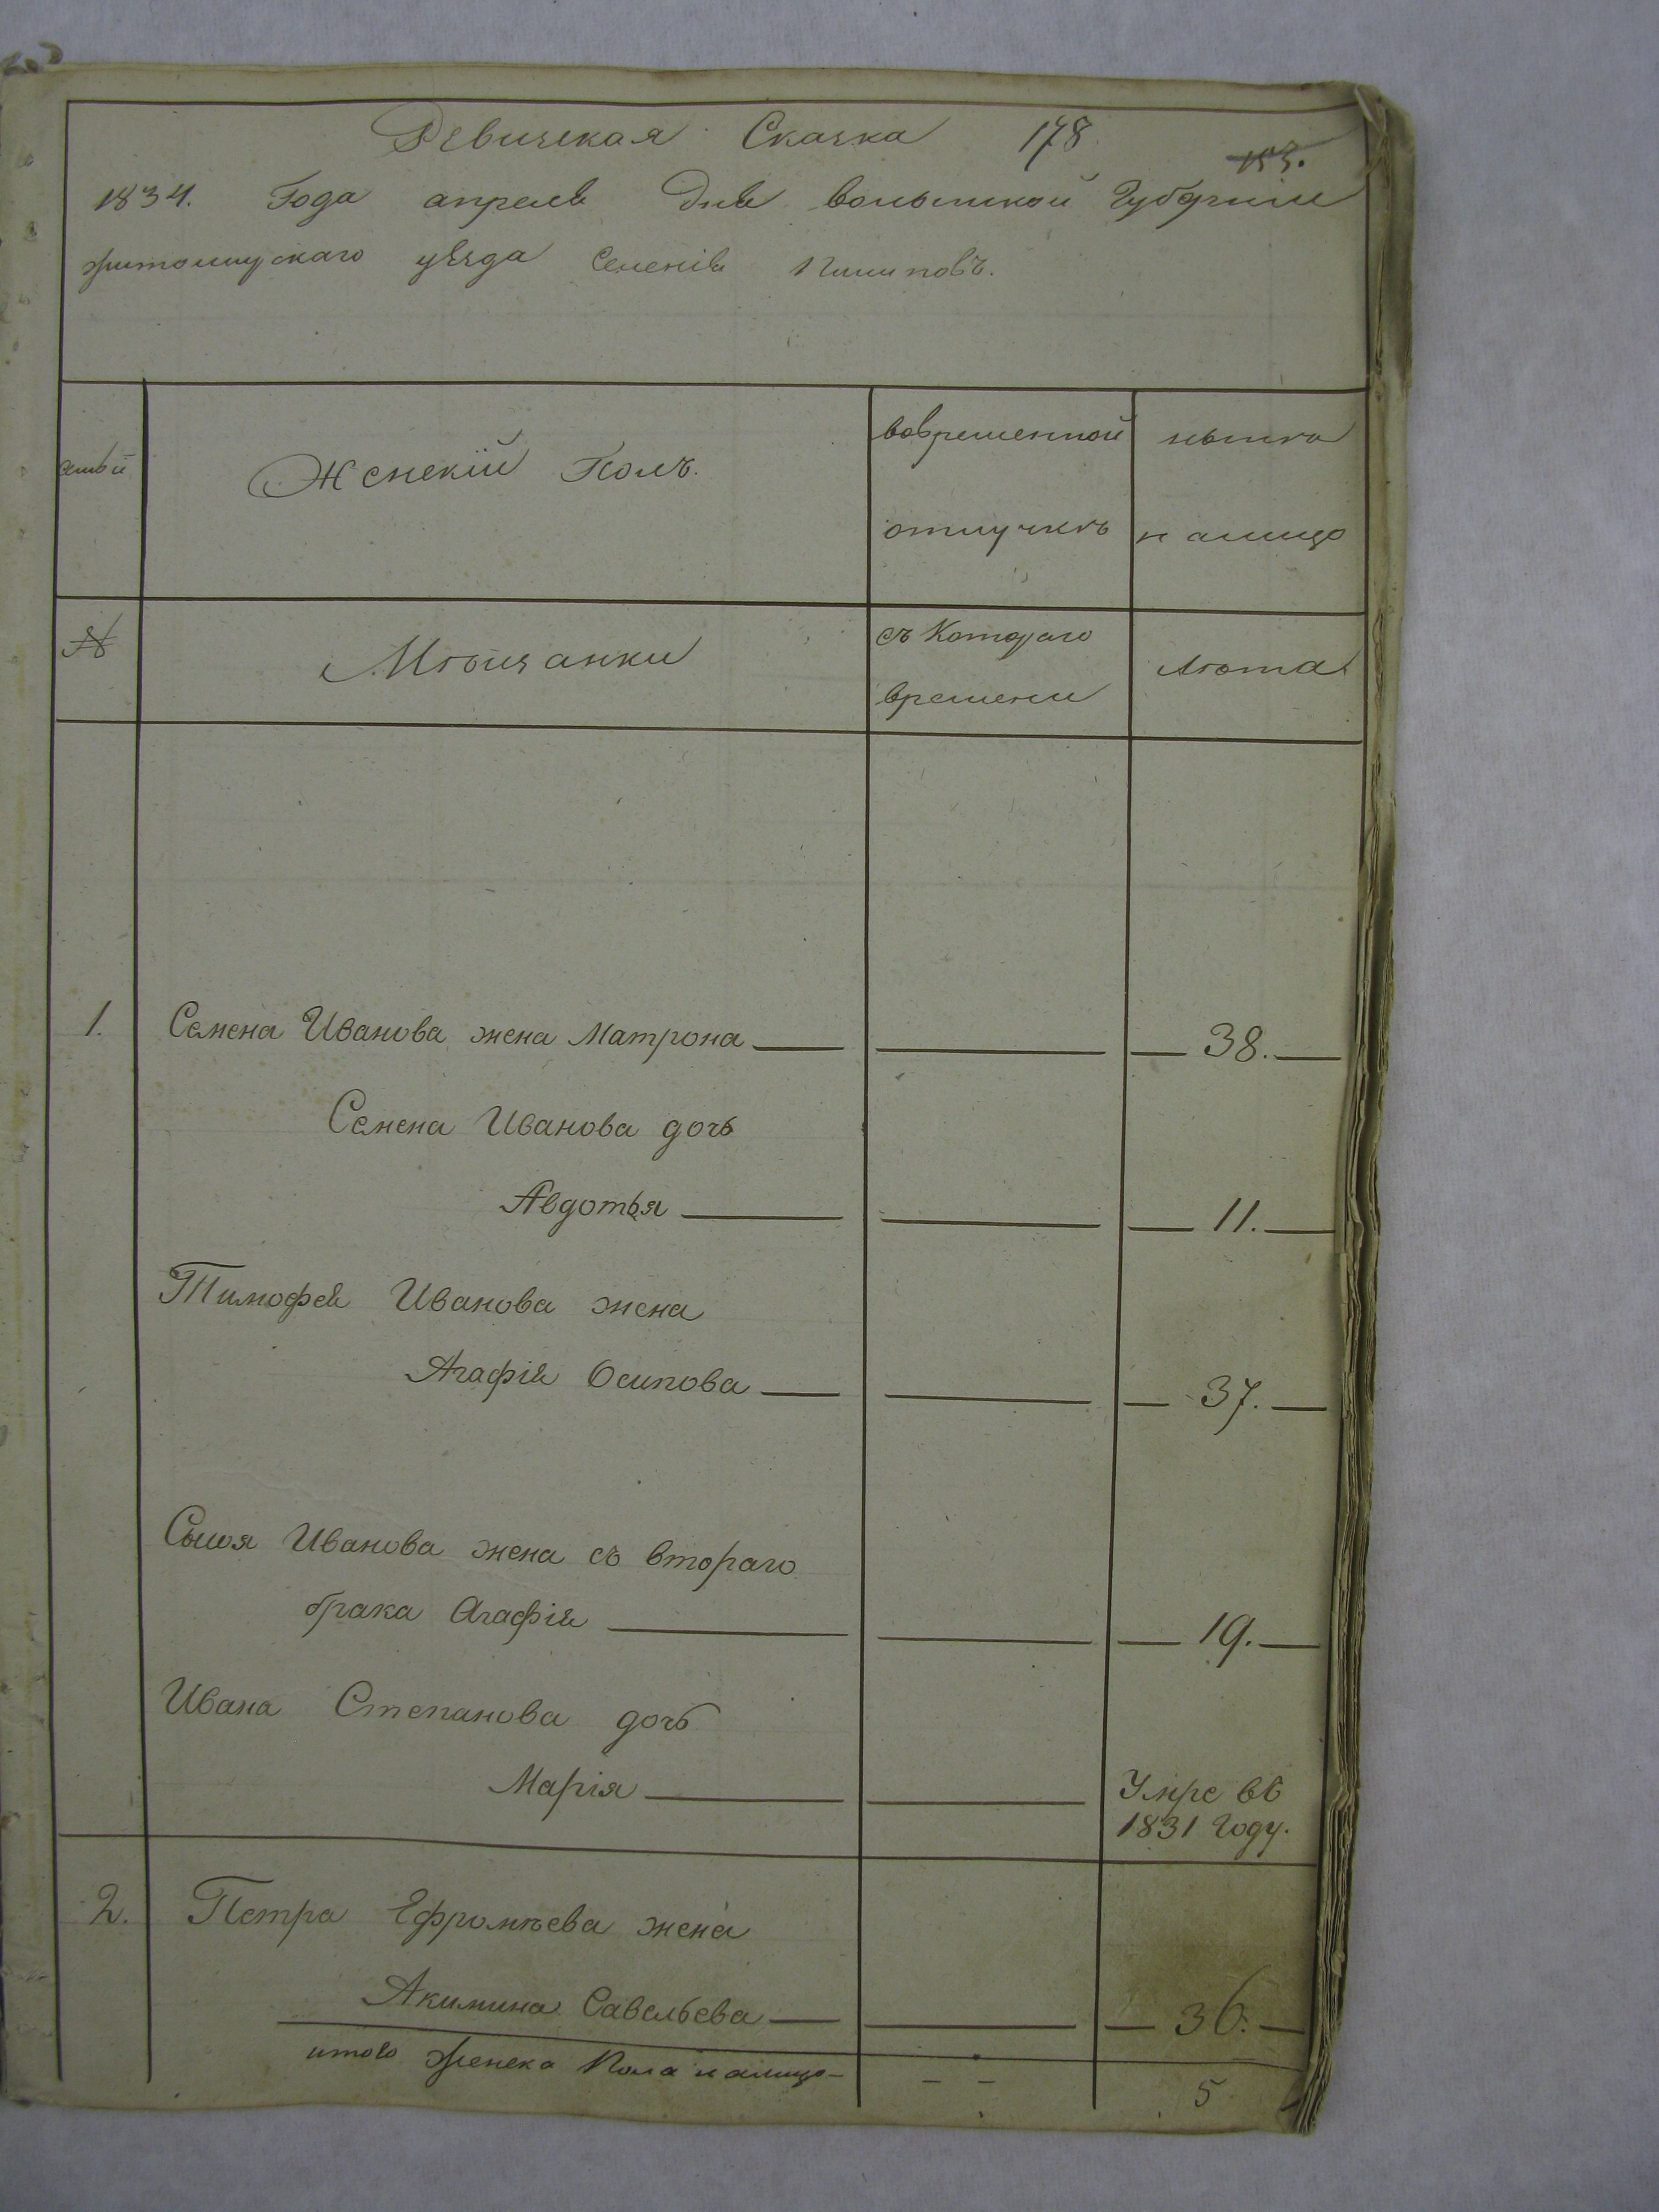 Ревизская Сказка 178
153.
1834. Года апреля дня волынской Губернии
житомирскаго уезда Селенія Пилиповъ.
семьи Женскій Полъ. вовременной отлучкѣ нынѣ налицо
№ Мѣщанки съ Котораго времени Лѣта
1. Семена Иванова жена Матрона 38.
Семена Иванова дочь
Авдотья 11.
Тимофея Иванова жена
Агафія Осипова 37.
Иванова жена съ втораго
брака Агафія 19.
Ивана Степанова дочь
Марія Умре въ
1831 Году.
2. Петра Ефромѣева жена
Акилина Савельева 36.
итого Женска Пола налицо - - 5